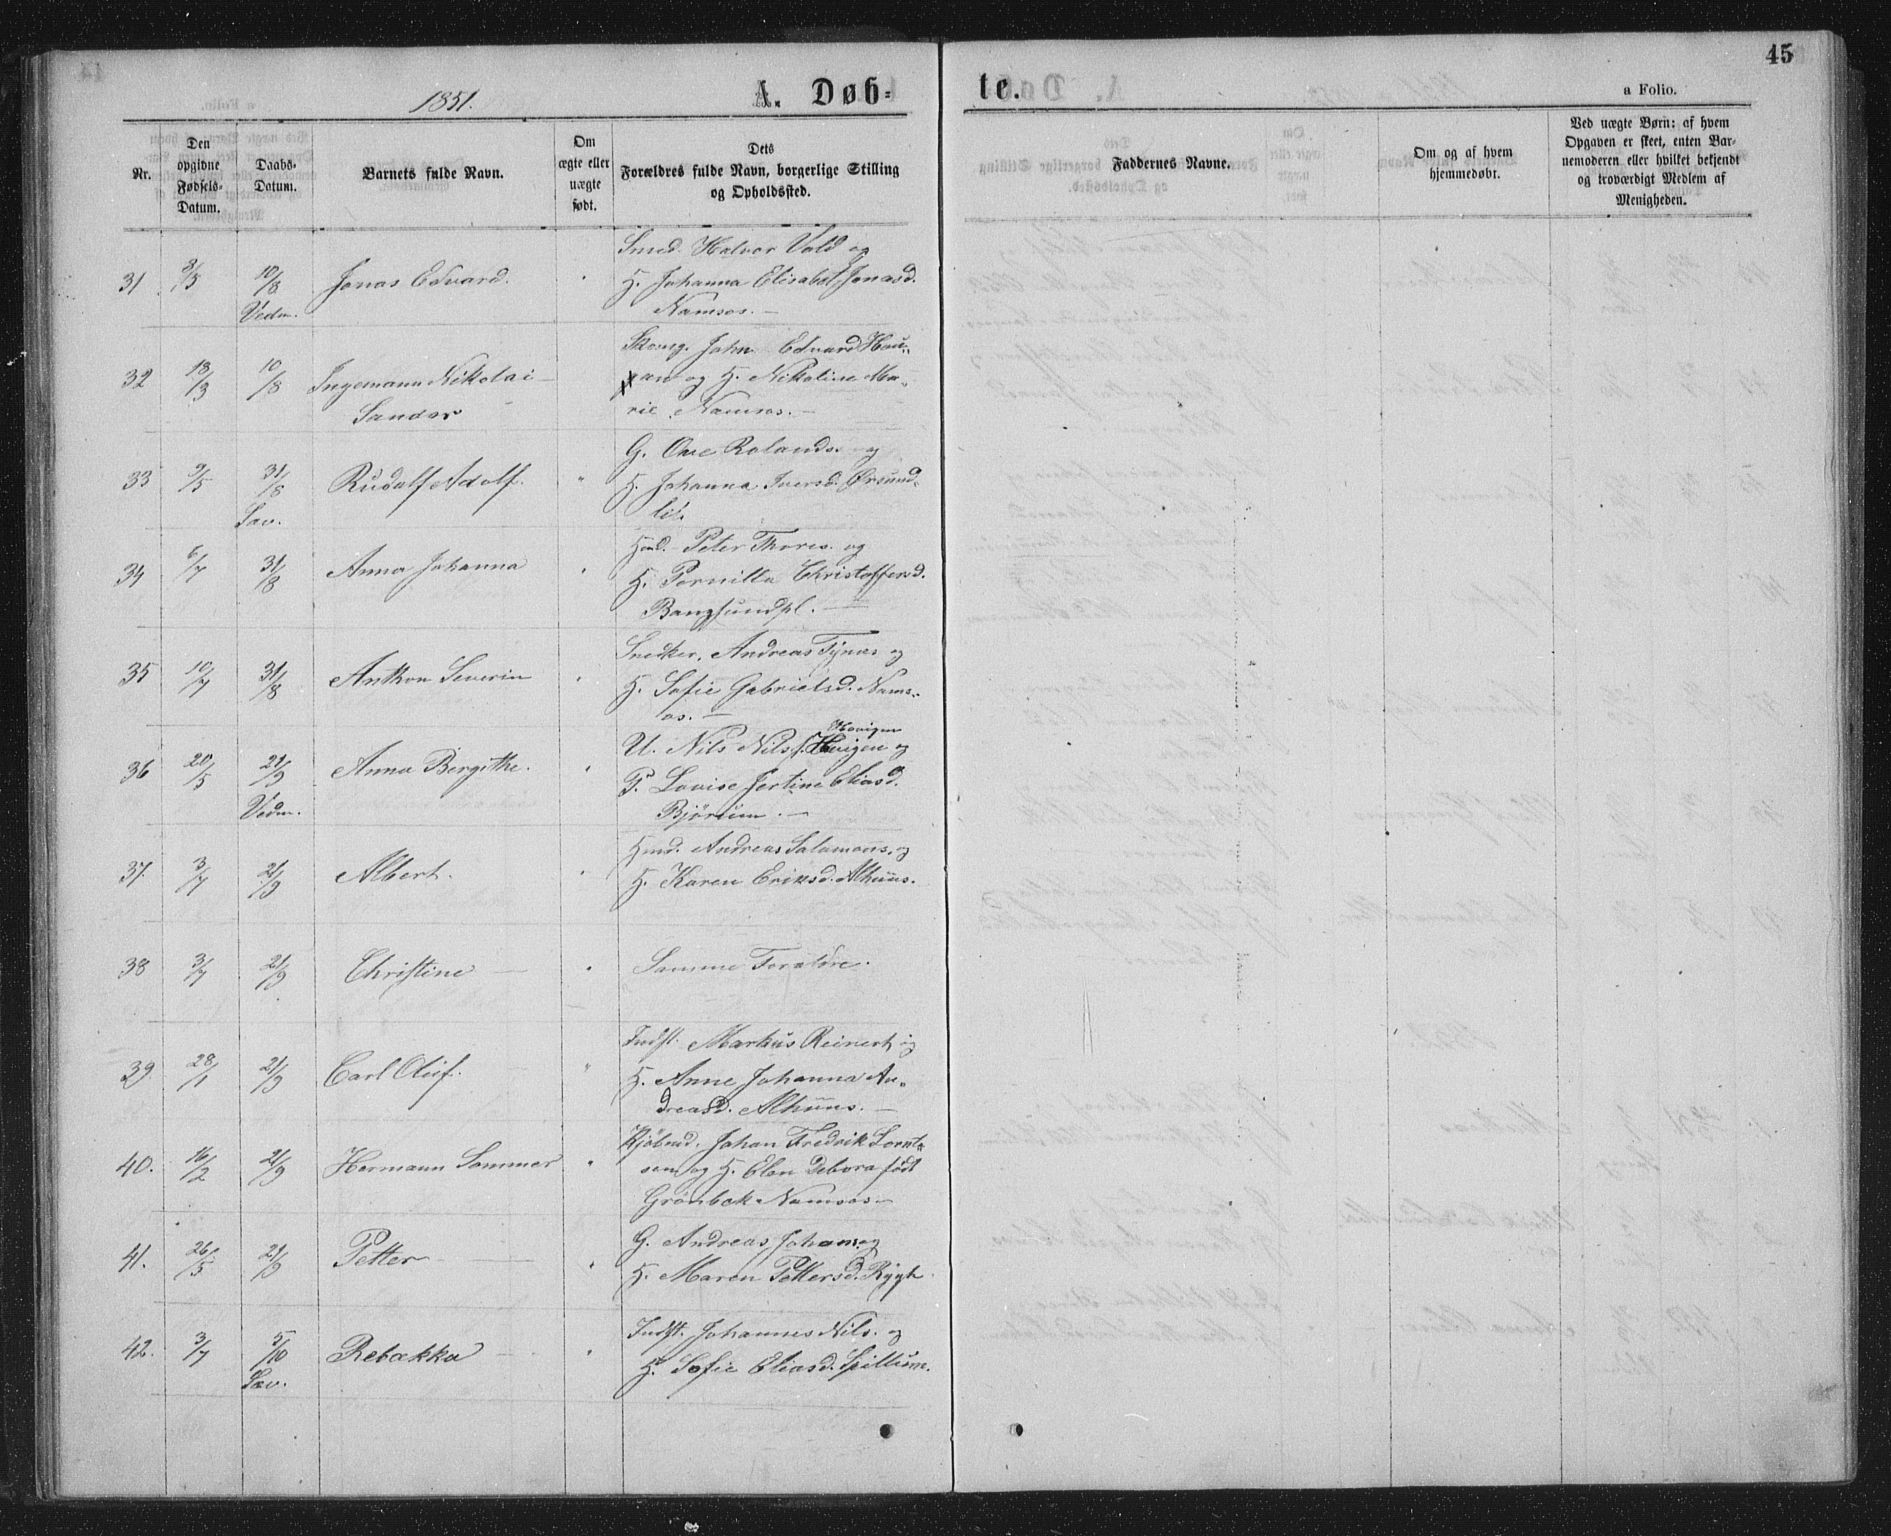 45
1851.
A. Døb-
te.
a Folio.
Nr.
Den
opgivne
Fødsels-
Datum.
Daabs-
Datum.
Barnets fulde Navn.
Om
ægte eller
uægte
født.
Dets
Forældres fulde Navn, borgerlige Stilling
og Opholdssted.
Faddernes Navne.
Om og af hvem
hjemmedøbt.
Ved uægte Børn: af hvem
Opgaven er skeet, enten Bar-
nemoderen eller hvilket bekjendt
og troværdigt Medlem af
Menigheden.
Smed. Halvor Vold og
31 8/5 10/8 Jonas Edvard. " H. Johanna Elisabet Jonasd.
Vedm. Namsos. —
Skomg. John Edvard Hau-
32 18/3 10/8 Ingemann Nikolai — an og H. Nikoline Ma-
Sandor rie, Namsos. —
G. Ove Rolands. og
33 9/5 31/8 Rudolf Adolf. " H. Johanna Iversd. Ørsund-
Sav. lit.
Hmd. Peter Thores. og
34 6/7 31/8 Anna Johanna " H. Pernilla Christoffersd.
Bangsundpl. —
Snedker. Andreas Tynæs og
35 10/7 31/8 Anthon Severin " H. Sofie Gabrielsd. Nams-
os. —
Hovigen
U. Nils Nilss. og
36 20/5 21/9 Anna Bergithe. " P. Lovise Jertine Eliasd.
Vedm. Bjørum. —
Hmd. Andreas Salamons. og
37. 3/7 21/9 Albert. " H. Karen Eriksd. Alhuus.
38 3/7 21/9 Christine — " Samme Forældre.
Indst. Markus Reinert og
39 28/1 21/9 Carl Oluf. " H. Anne Johanna An-
dreasd. Alhuus. —
Kjøbmd. Johan Fredrik Lornt-
40. 16/2 21/9 Hermann Sommer " sen og H. Elen Debora født
Grønbek Namsos —
G. Andreas Johans. og
41. 26/5 21/9 Petter — " H. Maren Pettersd. Rygh.
Indst. Johannes Nils. og
42. 3/7 5/10 Rebækka — " H. Sofie Eliasd. Spillum.
Sav.